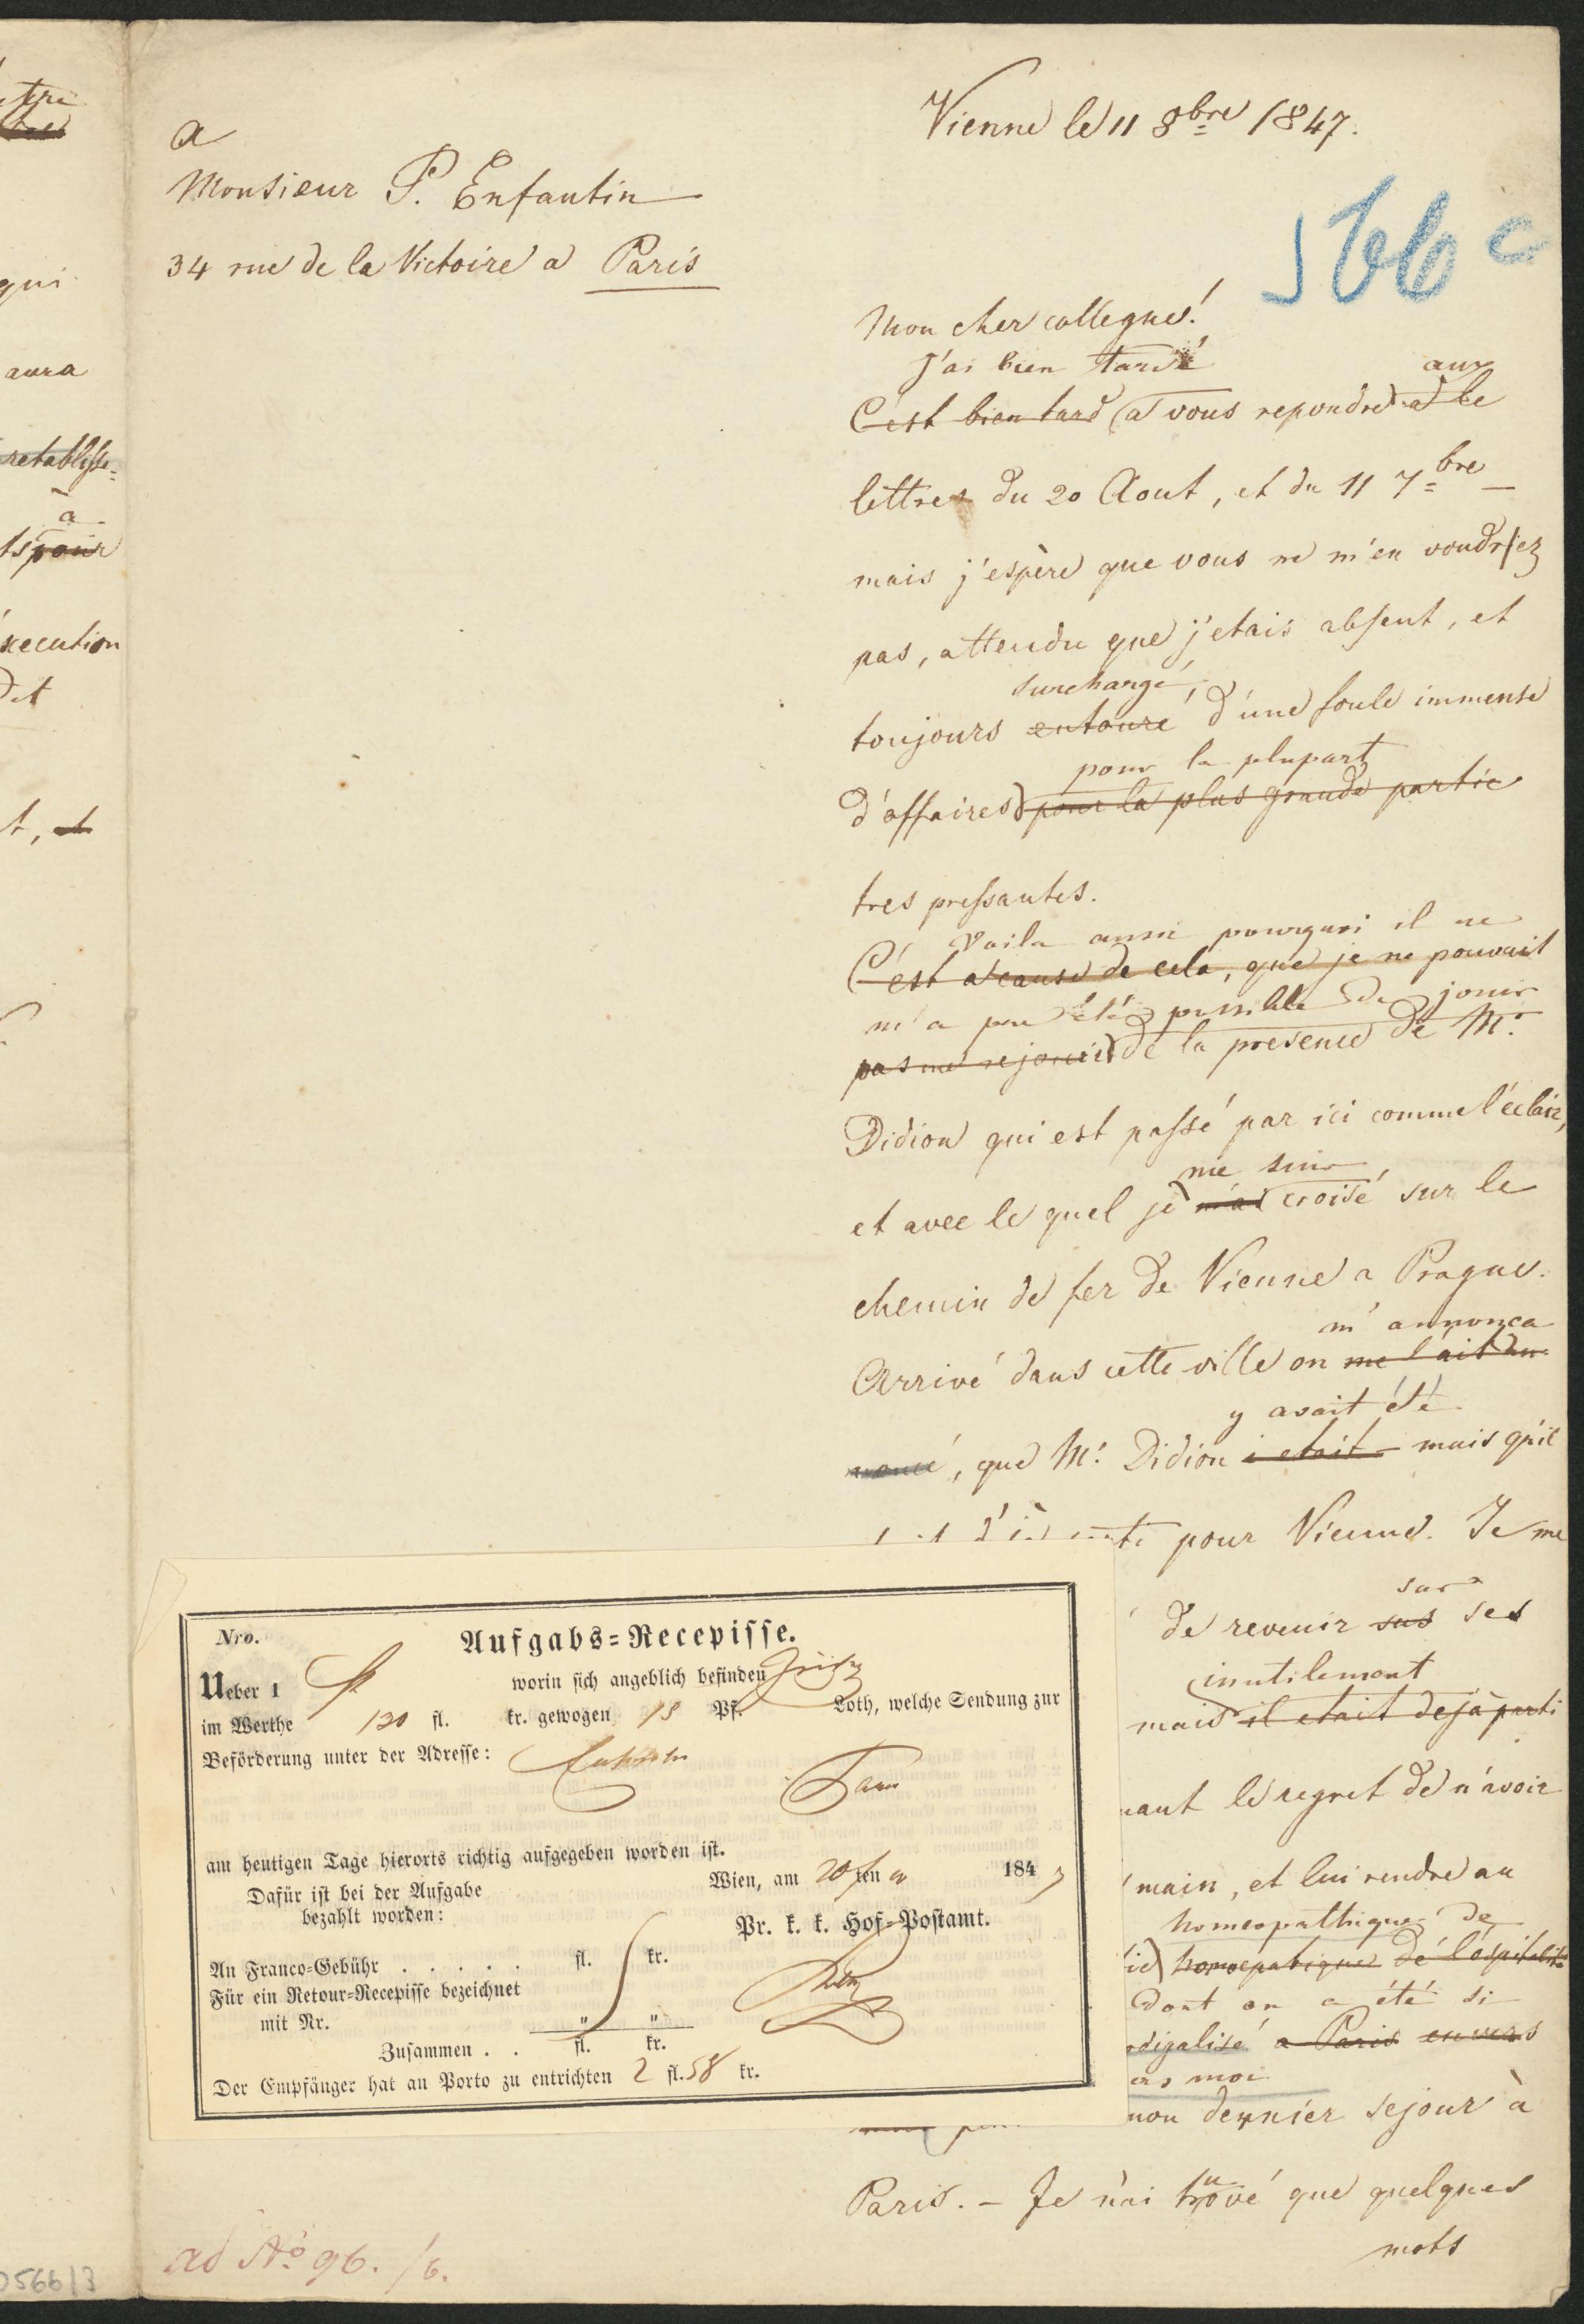 être
qui
aura
retablisse=
à
ts pour
xecution
det
t, et
056613
a
Monsieur P. Enfantin
34 rue de la Victoire a Paris
Vienne le 11 8bre 1847.
566 c
Mon cher collegue!
J'ai bien tardé aux
C'est bien tard a vous repondre a le
lettres du 20 Aout, et du 11 7bre
mais j'espère que vous ne m'en voudriez
pas, attendu que j'etais absent, et
surchargé,
toujours entouré d'une foule immense
pour la plupart
d'affaires pour la plus grande partie
tres pressantes.
Voila aussi pourquoi il ne
C'est a cause de cela, que je ne pouvait
m'a peu été possible de jouir
pas me rejouir de la presence de Mr.
Didion qui est passé par ici comme l'éclair,
me suis
et avec le quel je m'ai croisé sur le
chemin de fer de Vienne a Prague.
m'annonca
Arrivé dans cette ville on me l'ait an=
y avait été
noncé, que Mr. Didion i etait mais qu'il
pour Vienne. Je me
sur
de revenir sus ses
inutilement
mais il etait deja parti
nant le regret de n'avoir
main, et lui rendre au
homeopathique de
tie homoepatique de l'ospitalité
dont on a été si
odigalisé a Paris envers
ers moi
mon dernier sejour à
Paris. – Je n'ai trouvé que quelques
mots
Nro. Aufgabs=Recepisse.
Ueber 1 worin sich angeblich befinden
im Werthe 130 fl. kr. gewogen 15 Pf. Loth, welche Sendung zur
Beförderung unter der Adresse: Enfantin
Paris
am heutigen Tage hierorts richtig aufgegeben worden ist.
Dafür ist bei der Aufgabe Wien, am 20 ten 1847
bezahlt worden:
Pr. k. k. Hof=Postamt.
An Franco=Gebühr . . . . . fl. kr.
Für ein Retour=Recepisse bezeichnet
mit Nr. " "
Zusammen . . fl. kr.
Der Empfänger hat an Porto zu entrichten 2 fl. 58 kr.
ad No 96. /6.